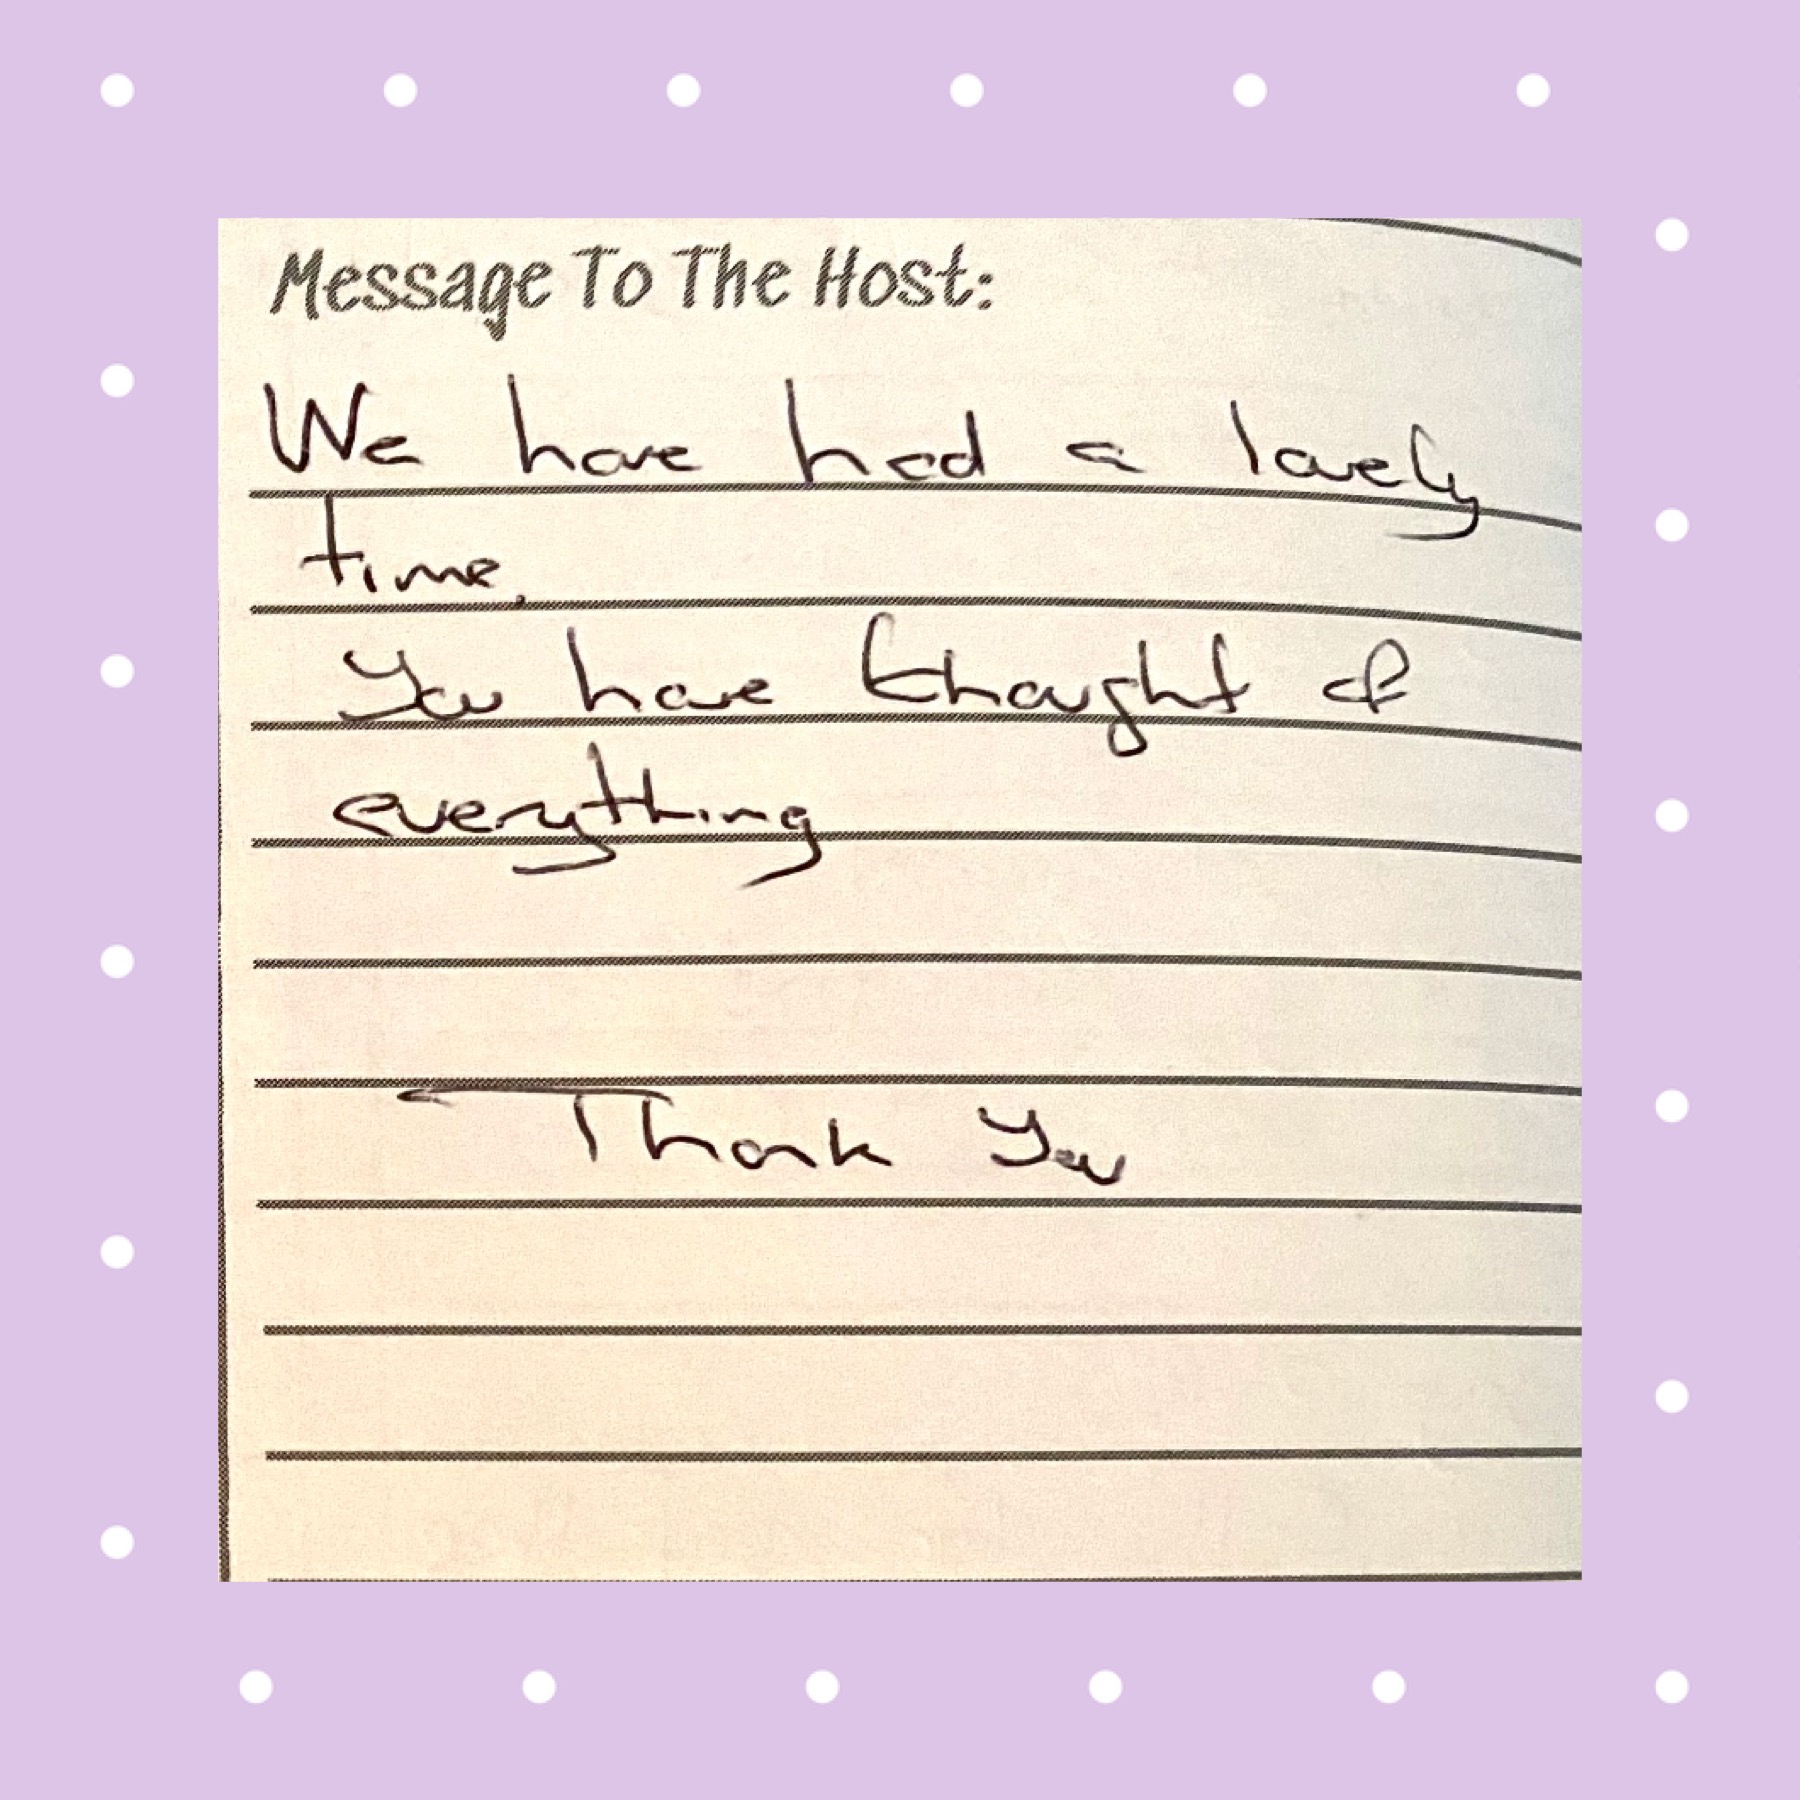 Message To The Host:
We have had a lovely
time.
You have thought of
everything
Thank You